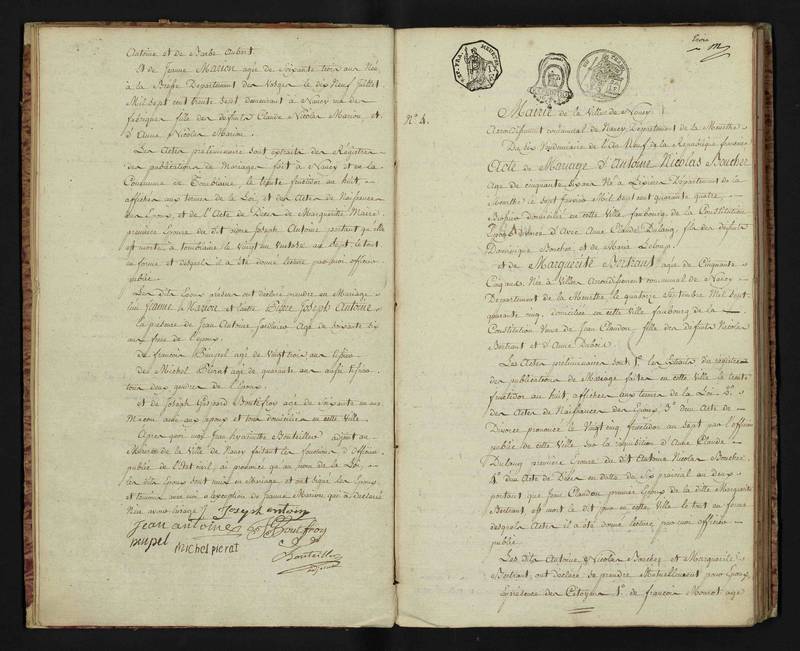 Antoine et de Barbe Aubert
Et de Jeanne Marion agée de Soixante trois ans Née
à la Bresse Département des Vosges le dix Neuf Juillet
Mil Sept cent trente Sept demeurant à Nancy rue des
fabriques fille des défunts Claude Nicolas Marion et
d'Anne Nicolas Marion.
Les Actes préliminaires sont extraits des Régistres
des publications de Mariages fait à Nancy et en la
Commune de Tomblaine, le trente fructidor an huit,
affichés aux termes de la Loi, et des Actes de Naissance
des Epoux, et de l'Acte de Décès de Marguerite
première Epouse du dit Joseph Antoine portant qu'elle
est morte à Tomblaine le Vingt un an Sept le tout
en forme et desquels il a été donné lecture par moi officier
public.
Les dits Epoux présens ont déclaré prendre en Mariage
l'un Jeanne Marion et l'autre Joseph Antoine
la présence de Jean Antoine Agé de Soixante six
ans frere de l'epoux
de françois Beupel agé de Vingt trois ans
de Michel Pierat agé de quarante ans aussi
tous deux gendres de l'Epoux
et de Joseph Gaspard Bontefroy agé de Soixante un ans
Macon amis aux Epoux et tous domiciliés en cette Ville
Après quoi moi Jean hyacinthe Bouteiller adjoint au
Maire de la Ville de Nancy faisant les fonctions d'Officier
public de l'Etat civil, ai prononcé qu'au nom de la Loi,
les dits Epoux sont unis en Mariage, et ont signé les Epoux
et témoins avec moi a l'exception de Jeanne Marion qui a déclaré
Joseph antoin
jean antoine
beupel michel pierat
Bouteiller
Trois
N.° 4. Mairie de la Ville de Nancy
Arrondissement communal de Nancy Département de la Meurthe
Du dix Vendemiaire de l'An Neuf de la République française
Acte de Mariage d'Antoine Nicolas Bouchez
Agé de cinquante six ans Né à Département de la
Meurthe le Sept fevrier Mil Sept cent quarante quatre
domicilié en cette Ville faubourg de la Constitution
Epoux Divorcé d'Avec Anne Claude Dulang, fils des défunts
Dominique Bouchez et de Maria Leloup.
et de Marguerite Bertrant agée de Cinquante
Cinq ans Née à Villers Arrondissement communal de Nancy
Département de la Meurthe le quatorze Septembre Mil Sept
quarante cinq, domiciliée en cette Ville faubourg de la
Constitution Veuve de Jean Claudon, fille des défunts Nicolas
Bertrant et d'Anne Dubois.
Les Actes préliminaires sont 1.° les Extraits du régistre
des publications de Mariage faites en cette Ville le trente
fructidor an huit, affichées aux termes de la Loi. 2.°
des Actes de Naissance des Epoux, 3.° d'un Acte de
Divorce prononcé le Vingt cinq fructidor an Sept par l'officier
public de cette Ville sur la requisition d'Anne Claude
Dulang première Epouse du dit Antoine Nicolas Bouchez.
4.° d'un Acte de Décès en datte du Six prairial an deux
portant que Jean Claudon premier Epoux de la dite Marguerite
Bertrant est mort le dit jour en cette Ville le tout en forme
desquels Actes il a été donné lecture par moi officier
public.
Les dits Antoine Nicolas Bouchez et Marguerite
Bertrant, ont déclaré se prendre Mutuellement pour Epoux
En présence des Citoyens 1.° de françois Mourot agé